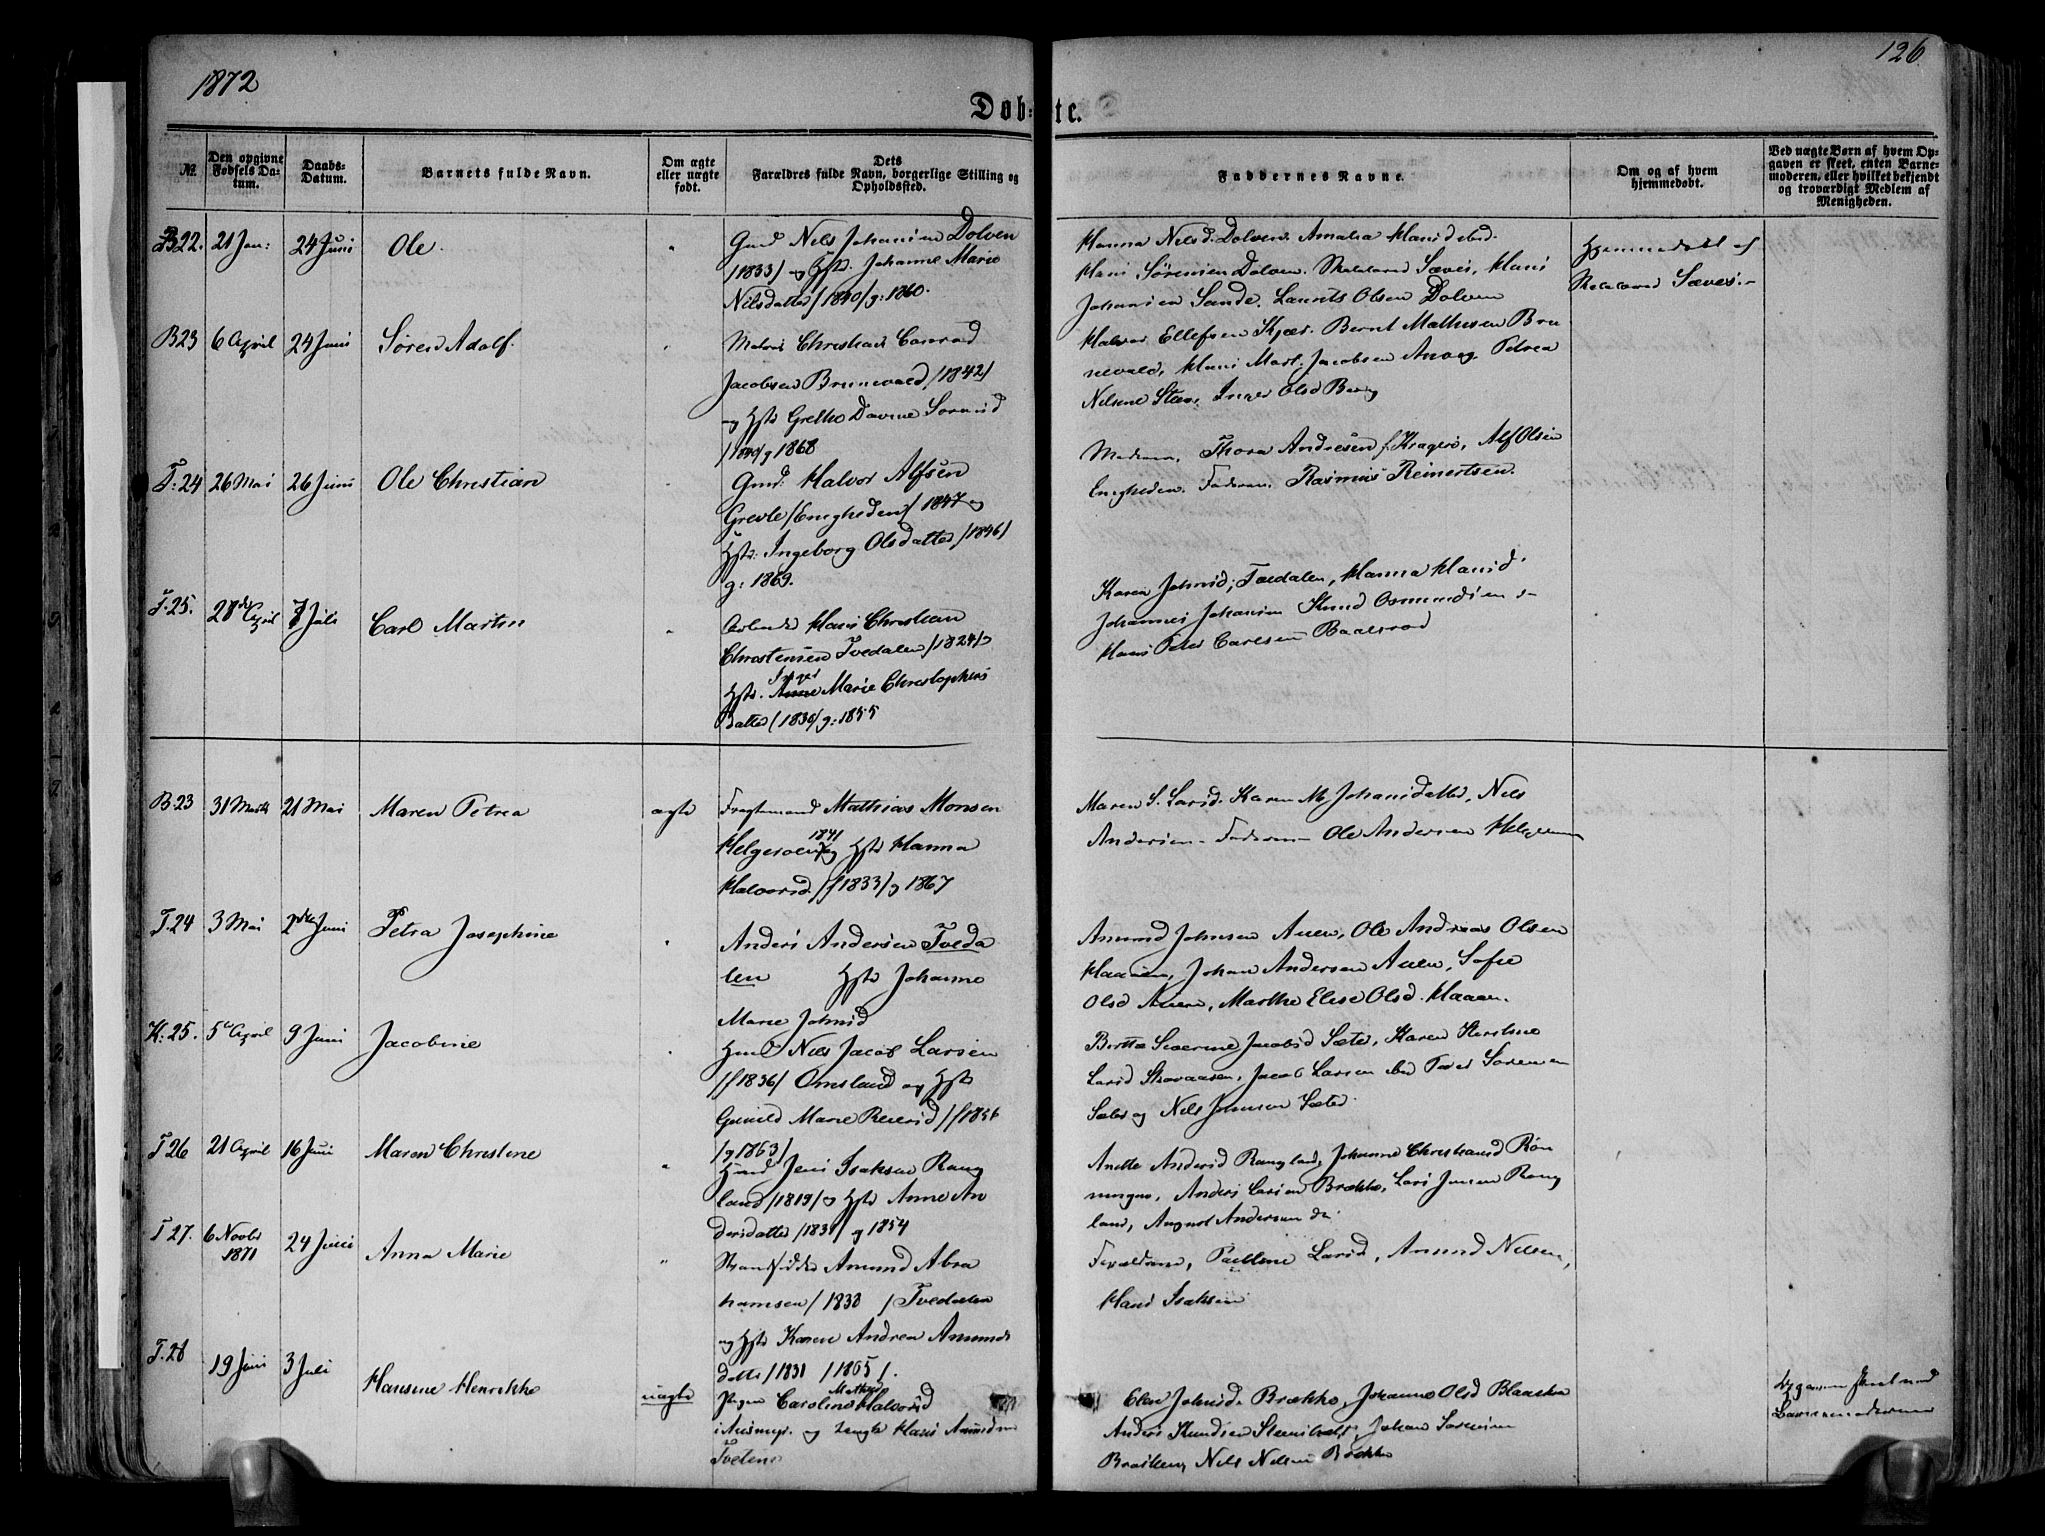 1872
126
Døb-te.
No.
Den opgivne Fødsels Datum.
Daabs-Datum.
Barnets fulde Navn.
Om ægte eller uægte født.
Dets Forældres fulde Navn, borgerlige Stilling og Opholdssted.
Faddernes Navne.
Om og af hvem hjemmedøbt.
Ved uægte Børn af hvem Opgaven er skeet, enten Barnemoderen, eller hvilket bekjendt og troværdigt Medlem af Menigheden.
B22. 21 Jan: 24 Juni Ole.
Gmd Nils Johansen Dolven
/1833/ og Hst. Johanne Marie
Nilsdatter /1840/ g: 1860.
Hanna Nilsd. Dolven. Amalia Hansd ibd.
Hans Sørensen Dolven. Sæves, Hans
Johansen Sande. Laurits Olsen Dolven
Hjemmedøbt af
Sæves.
B23 6 April 24 Juni Søren Adolf.
Matros Christian Conrad
Jacobsen Brunevald /1842/
og Hst Grethe Davine Sørensd
g 1868
Halvor Ellefsen Kjær. Bernt Mathisen Bru
nevald, Hans Mart. Jacobsen Petrea
Nilsene Steen, Inger Olsd Berg
T:24 26 Mai 26 Juni Ole Christian
Gmd. Halvor Alfsen
Grevle /Enigheden/ 1847 og
Hst: Ingeborg Olsdatter /1846/
g: 1869.
Moderen, Thora Andresen f. Kragerø, Alf Olsen
Enigheden. Faderen. Rasmus Reinertsen.
T.25. 28de April 7 Juli Carl Martin
Arbeider Hans Christian
Christensen Tvedalen /1824/ og
Inger
Hst. Anne Marie Christophers
datter /1830/ g: 1855
Karen Johnsd; Tvedalen, Hanna Hansd.
Johannes Johansen Knud Osmundsen
Hans Peter Carlsen Baalsrød
B23 31 Marts 21 Mai Maren Petrea ægte
Fragtemand Mathias Monsen
1841
Helgeroen og Hst Hanna
Halvorsd. /f 1833/ g 1867
Maren S. Larsd. Karen M. Johansdatter, Nils
Andersen. Faderen Ole Andersen Helgeroen
T.24 3 Mai 2den Juni Petra Josephine
Anders Andersen Tveda
len Hst Johanne
Marie Johnsd
Amund Johnsen Auen, Ole Andreas Olsen
Haaøen, Johan Andersen Auen, Sofie
Olsd Auen, Marthe Elise Olsd. Haaøen.
K:25. 5te April 9 Juni Jacobine
Gmd Nils Jacob Larsen
/f 1836/ Omsland og Hst
Gunild Marie Reiersd /f 1836
/g 1863/
Berthe Severine Jacobsd Sæter, Karen Kirstine
Larsd Skovaasen, Jacob Larsen ibd Peder Sørensen
Sæter og Nils Jensen Sæter.
T26 21 April 16 Juni Maren Christine
Husmd Jens Isaksen Rang
land /1819/ og Hst Anne An
dersdatter /1831/ g 1854
Anette Andersd Rangland, Johanne Christiansd Røn
ningen, Anders Larsen Brække, Lars Jensen Rang
land, August Andersen do
T27. 6 Novbr 1871 24 Juni Anna Marie
Strandsidder Amund Abra
hamsen /1838 / Tvedalen
og Hst Karen Andrea Amunds
datter /1831 /1865/.
Forældrene, Pauline Larsd, Amund Nilsen,
Hans Isaksen
T.28 19 Juni 3 Juli Hansine Henrikke uægte
Mathea
Pigen Caroline Halvorsd
i Auemyr. og Ungk Hans Amundsen
Tvetene
Elen Johnsd. Brække, Johanne Olsd Blaaskia
Anders Knudsen Steensholt, Johan Sørensen
Nils Nilsen Brække
Opgaven skeet ved
Barnemoderen